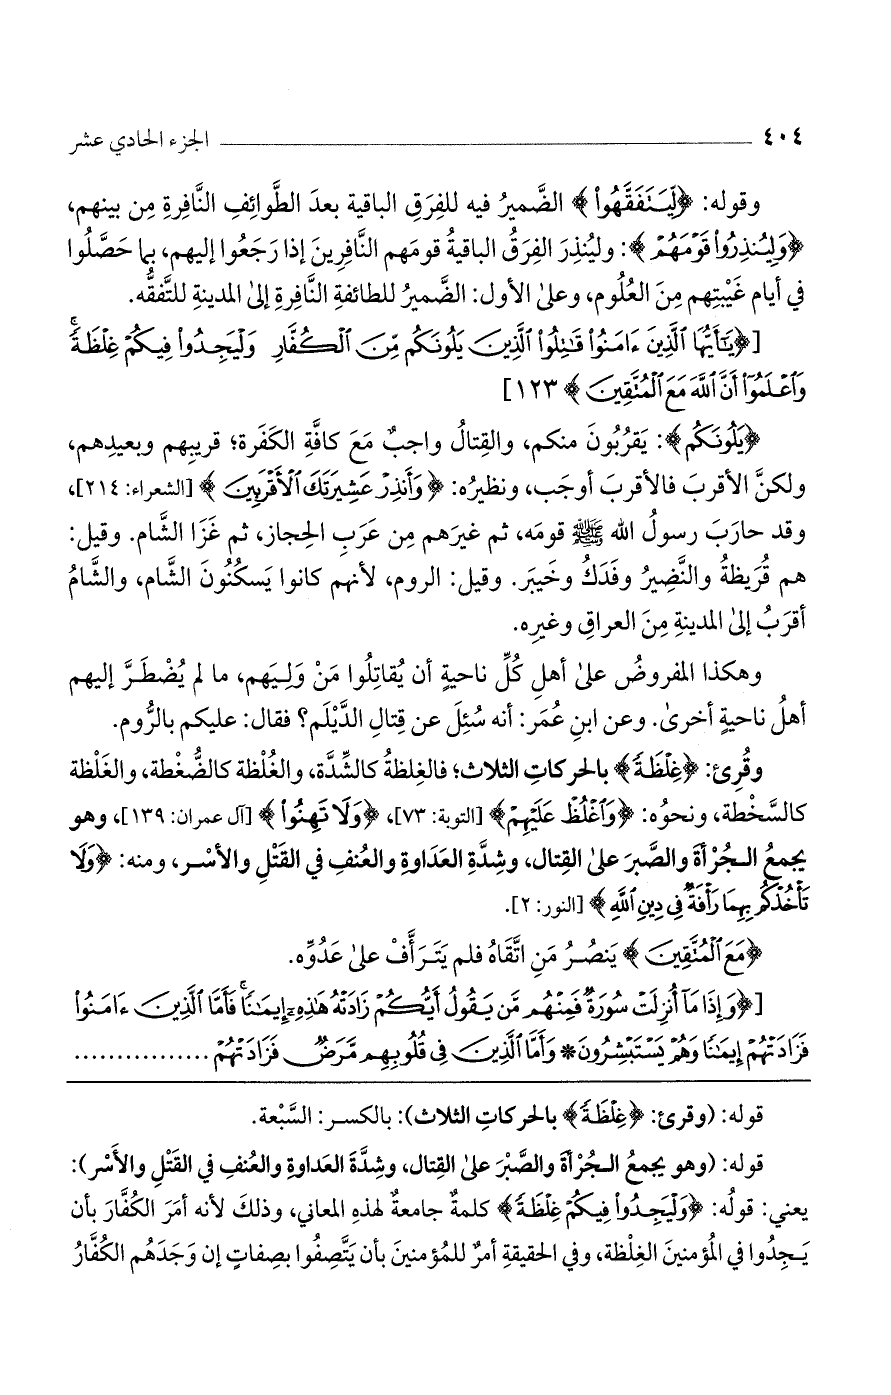 ٤٠٤ الجزء الحادي عشر
وقوله: ﴿لِّيَتَفَقَّهُوا۟﴾ الضَّميرُ فيه للفِرَقِ الباقية بعدَ الطَّوائفِ النَّافِرةِ مِن بينهم،
﴿وَلِيُنذِرُوا۟ قَوْمَهُمْ﴾: وليُنذِرَ الفِرَقُ الباقيةُ قومَهم النَّافِرينَ إذا رَجَعُوا إليهم، بما حَصَّلُوا
في أيام غَيْبتِهم مِنَ العُلُوم، وعلىٰ الأول: الضَّميرُ للطائفةِ النَّافرةِ إلىٰ المدينةِ للتَّفقُّه.
[﴿يَٰٓأَيُّهَا ٱلَّذِينَ ءَامَنُوا۟ قَٰتِلُوا۟ ٱلَّذِينَ يَلُونَكُم مِّنَ ٱلْكُفَّارِ وَلْيَجِدُوا۟ فِيكُمْ غِلْظَةً ۚ
وَٱعْلَمُوٓا۟ أَنَّ ٱللَّهَ مَعَ ٱلْمُتَّقِينَ﴾ ١٢٣]
﴿يَلُونَكُم﴾: يَقرُبُونَ منكم، والقِتالُ واجبٌ مَعَ كافَّةِ الكَفَرة؛ قريبِهم وبعيدِهم،
ولكنَّ الأقربَ فالأقربَ أوجَب، ونظيرُه: ﴿وَأَنذِرْ عَشِيرَتَكَ ٱلْأَقْرَبِينَ﴾ [الشعراء: ٢١٤]،
وقد حارَبَ رسولُ الله ﷺ قومَه، ثم غيرَهم مِن عَرَبِ الحِجاز، ثم غَزَا الشَّام. وقيل:
هم قُرَيظةُ والنَّضِيرُ وفَدَكُ وخَيبَر. وقيل: الروم، لأنهم كانوا يَسكُنُونَ الشَّام، والشَّامُ
أقرَبُ إلىٰ المدينةِ مِنَ العراقِ وغيرِه.
وهكذا المفروضُ علىٰ أهلِ كُلِّ ناحيةٍ أن يُقاتِلُوا مَنْ وَلِـيَهم، ما لم يُضْطَرَّ إليهم
أهلُ ناحيةٍ أخرىٰ. وعن ابنِ عُمَر: أنه سُئِلَ عن قِتالِ الدَّيْلَم؟ فقال: عليكم بالرُّوم.
وقُرِئ: ﴿غِلْظَةً﴾ بالحركاتِ الثلاث؛ فالغِلظةُ كالشِّدَّة، والغُلْظة كالضُّغْطة، والغَلْظة
كالسَّخْطة، ونحوُه: ﴿وَٱغْلُظْ عَلَيْهِمْ﴾ [التوبة: ٧٣]، ﴿وَلَا تَهِنُوا۟﴾ [آل عمران: ١٣٩]، وهو
يجمعُ الـجُرْأةَ والصَّبرَ علىٰ القِتال، وشِدَّةَ العَدَاوةِ والعُنفِ في القَتْلِ والأسْر، ومنه: ﴿وَلَا
تَأْخُذْكُم بِهِمَا رَأْفَةٌ فِى دِينِ ٱللَّهِ﴾ [النور: ٢].
﴿مَعَ ٱلْمُتَّقِينَ﴾ يَنصُـرُ مَنِ اتَّقَاهُ فلم يَتَـرَأَّفْ علىٰ عَدُوِّه.
[﴿وَإِذَا مَآ أُنزِلَتْ سُورَةٌ فَمِنْهُم مَّن يَقُولُ أَيُّكُمْ زَادَتْهُ هَٰذِهِۦٓ إِيمَٰنًا ۚ فَأَمَّا ٱلَّذِينَ ءَامَنُوا۟
فَزَادَتْهُمْ إِيمَٰنًا وَهُمْ يَسْتَبْشِرُونَ * وَأَمَّا ٱلَّذِينَ فِى قُلُوبِهِم مَّرَضٌ فَزَادَتْهُمْ ................
قوله: (وقرئ: ﴿غِلْظَةً﴾ بالحركاتِ الثلاث): بالكسـر: السَّبْعة.
قوله: (وهو يجمعُ الـجُرْأةَ والصَّبْرَ علىٰ القِتال، وشِدَّةَ العداوةِ والعُنفِ في القَتْلِ والأَسْر):
يعني: قولُه: ﴿وَلْيَجِدُوا۟ فِيكُمْ غِلْظَةً﴾ كلمةٌ جامعةٌ لهذهِ المعاني، وذلكَ لأنه أمَرَ الكُفَّارَ بأن
يَـجِدُوا في المُؤمنينَ الغِلْظة، وفي الحقيقةِ أمرٌ للمُؤمنينَ بأن يَتَّصِفُوا بصِفاتٍ إن وَجَدَهُم الكُفَّارُ